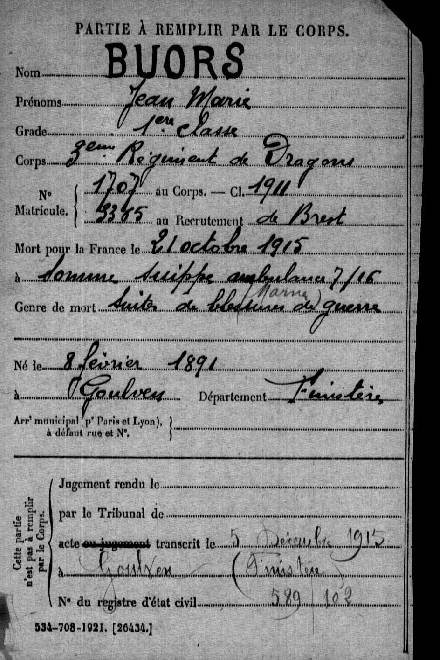 PARTIE À REMPLIR PAR LE CORPS.
Nom BUORS
Prénoms Jean Marie
Grade 1ère classe
Corps 3eme Régiment de Dragons
N° Matricule. { 1707 au Corps. — Cl. 1911
3355 au Recrutement de Brest
Mort pour la France le 21 octobre 1915
à Somme Suippe ambulance 7/16
Marne
Genre de mort Suites de blessures de guerre
Né le 8 février 1891
à Goulven Département Finistère
Arrt municipal (pr Paris et Lyon), à défaut rue et N°. }
Cette partie n'est pas à remplir par le Corps.
Jugement rendu le
par le Tribunal de
acte ou jugement transcrit le 5 Décembre 1915
à Goulven (Finistère
N° du registre d'état civil 589/102
534-708-1921. [26434.]